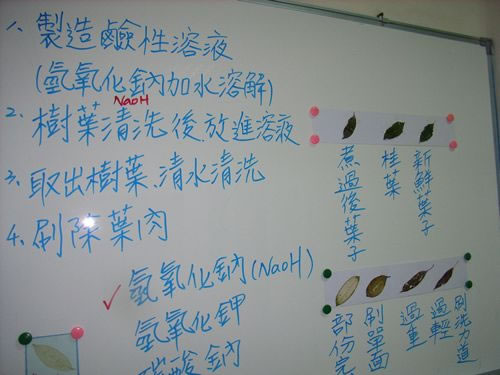 1. 製造鹼性溶液
(氫氧化鈉加水溶解)
NaOH
2. 樹葉清洗後、放進溶液
3. 取出樹葉、清水清洗
4. 刷除葉肉
✓ 氫氧化鈉(NaOH)
氫氧化鉀
碳酸鈉
新鮮葉子
桂葉
煮過後葉子
刷洗力道
過輕
過重
刷單面
部份完